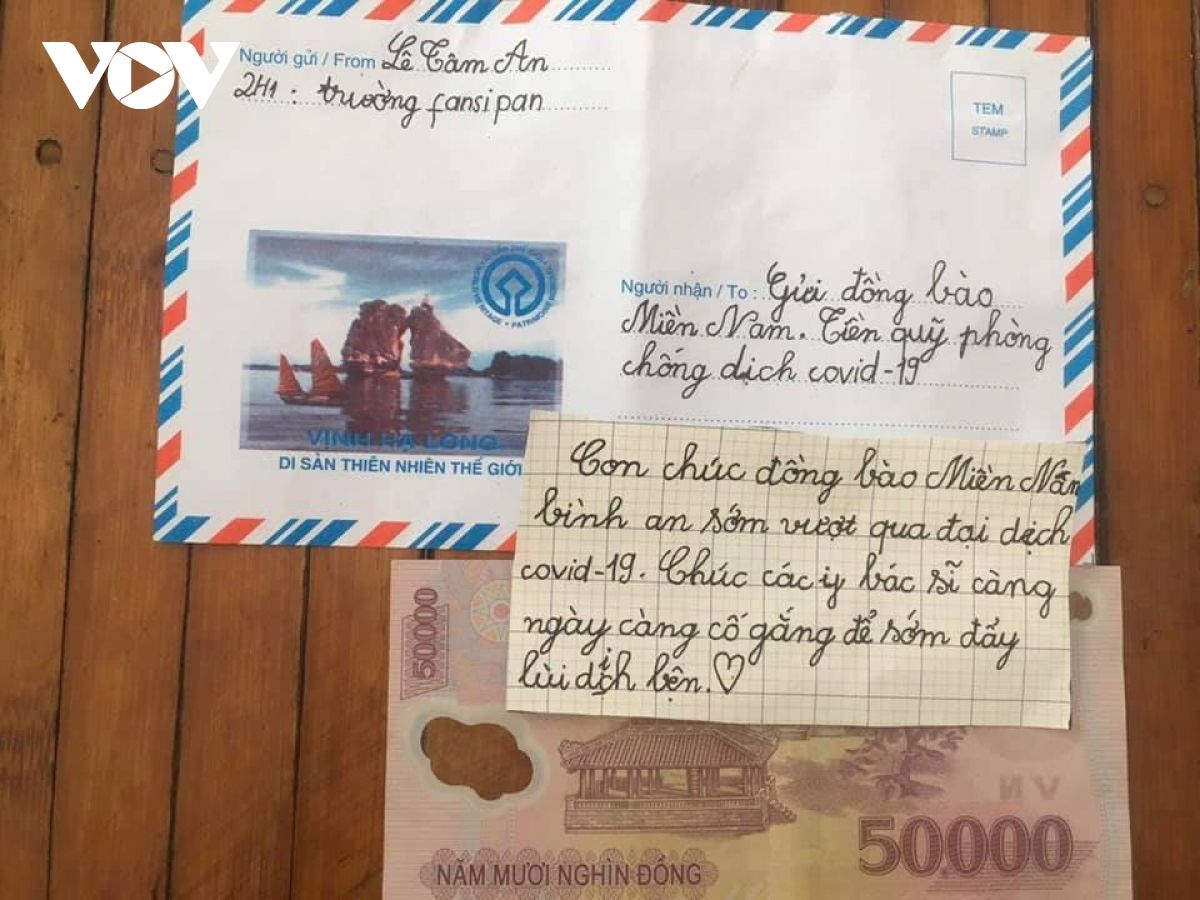 VOV
Người gửi / From Lê Tâm An
2H1 : trường fansipan
TEM
STAMP
Người nhận / To : Gửi đồng bào
Miền Nam. Tiền quỹ phòng
chống dịch covid-19
VỊNH HẠ LONG
DI SẢN THIÊN NHIÊN THẾ GIỚI
Con chúc đồng bào Miền Nam
bình an sớm vượt qua đại dịch
covid-19. Chúc các y bác sĩ càng
ngày càng cố gắng để sớm đẩy
lùi dịch bện.
50000
VN
50000
NĂM MƯƠI NGHÌN ĐỒNG